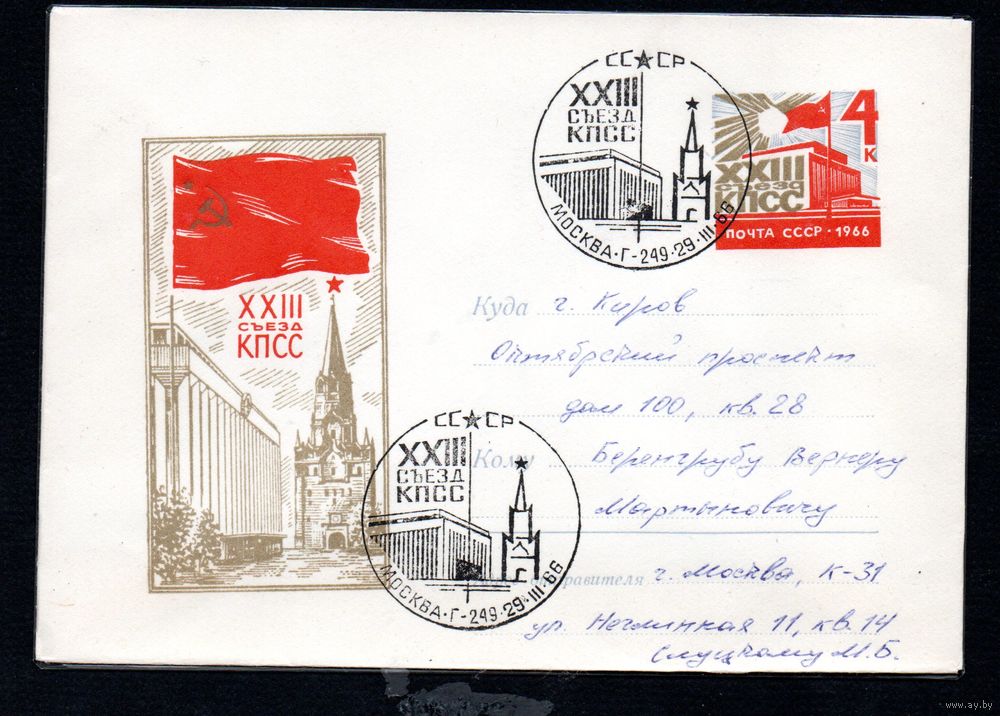 СС★СР
XXIII
СЪЕЗД
КПСС
МОСКВА·Г-249·29·III·66
4
К
XXIII
СЪЕЗД
КПСС
ПОЧТА СССР·1966
XXIII
СЪЕЗД
КПСС
Куда г. Киров
Октябрьский проспект
дом 100, кв. 28
СС★СР
XXIII
СЪЕЗД
КПСС
МОСКВА·Г-249·29·III·66
Кому Беренгрубу Вернеру
Мартыновичу
г. Москва, К-31
ул. Неглинная 11, кв. 14
Слуцкому М. Б.
www.ay.by